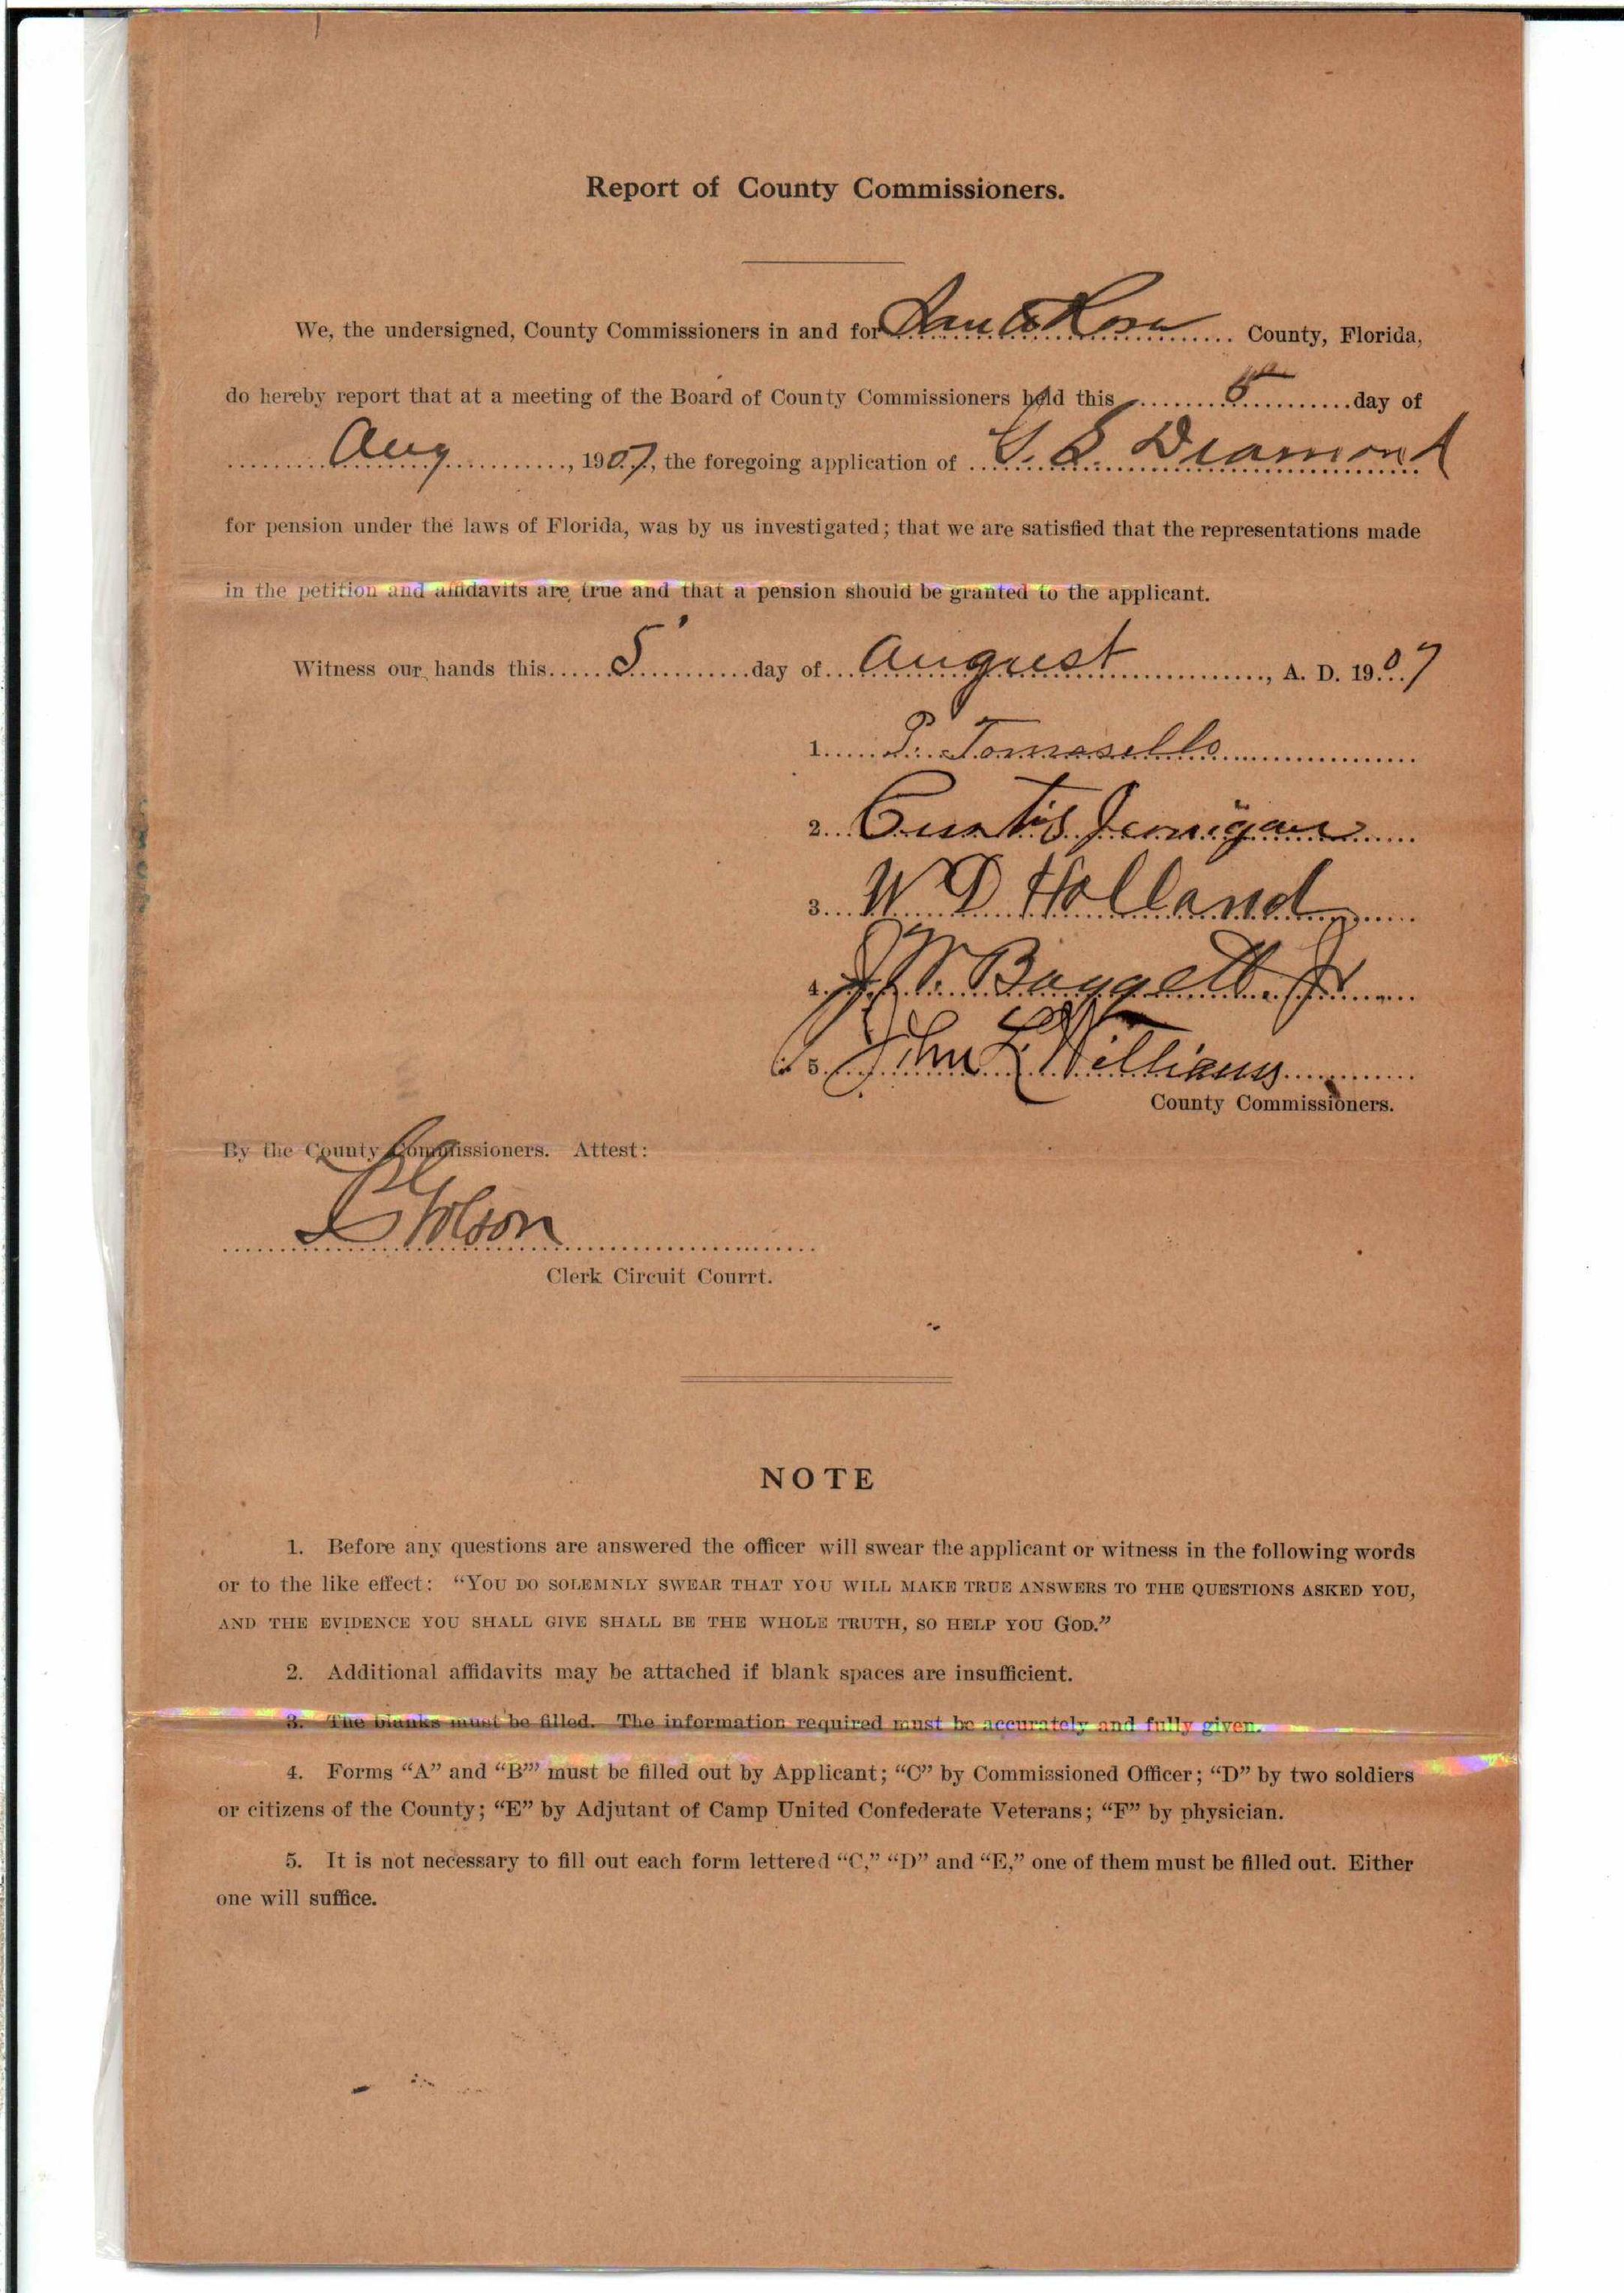 Report of County Commissioners.
We, the undersigned, County Commissioners in and for Santa Rosa County, Florida,
do hereby report that at a meeting of the Board of County Commissioners held this 5th day of
Aug, 1907, the foregoing application of Diamond
for pension under the laws of Florida, was by us investigated; that we are satisfied that the representations made
in the petition and affidavits are true and that a pension should be granted to the applicant.
Witness our hands this 5 day of August, A. D. 1907
1. P. Tomasello
2. Curtis Jernigan
3. W D Holland
4. J. W. Baggett. Jr
5. John L Williams
County Commissioners.
By the County Commissioners. Attest:
Clerk Circuit Courrt.
NOTE
1. Before any questions are answered the officer will swear the applicant or witness in the following words
or to the like effect: "YOU DO SOLEMNLY SWEAR THAT YOU WILL MAKE TRUE ANSWERS TO THE QUESTIONS ASKED YOU,
AND THE EVIDENCE YOU SHALL GIVE SHALL BE THE WHOLE TRUTH, SO HELP YOU GOD."
2. Additional affidavits may be attached if blank spaces are insufficient.
3. The blanks must be filled. The information required must be accurately and fully given.
4. Forms "A" and "B'" must be filled out by Applicant; "C" by Commissioned Officer; "D" by two soldiers
or citizens of the County; "E" by Adjutant of Camp United Confederate Veterans; "F" by physician.
5. It is not necessary to fill out each form lettered "C," "D" and "E," one of them must be filled out. Either
one will suffice.